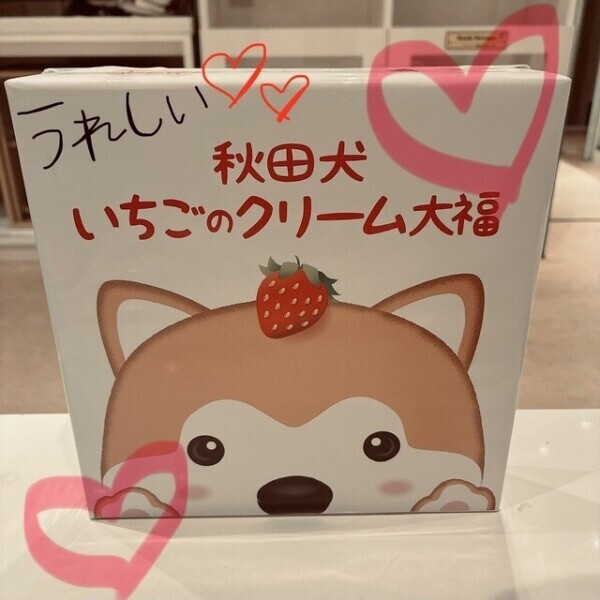 うれしい
秋田犬
いちごのクリーム大福